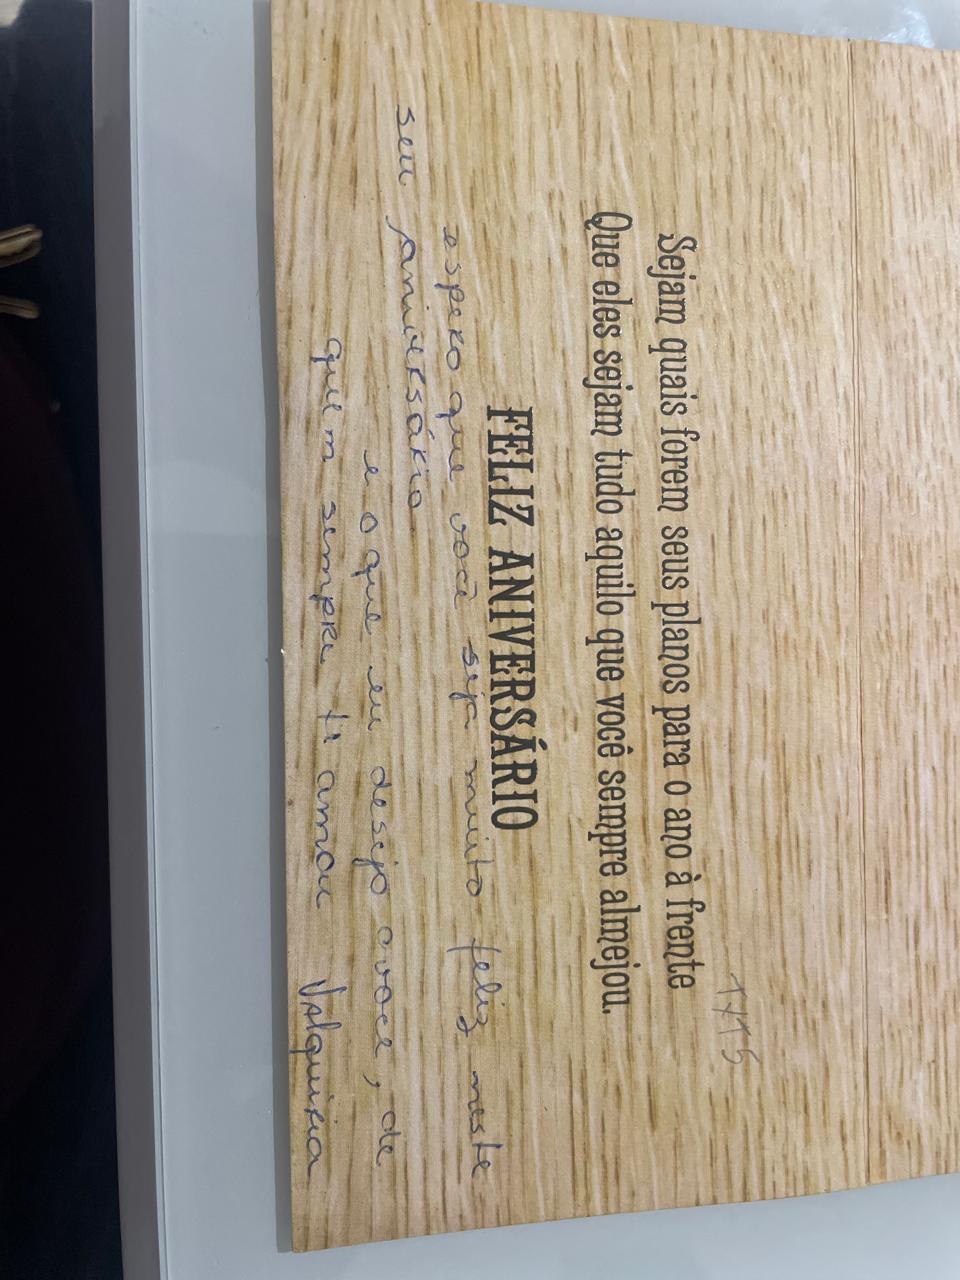 TXT5
Sejam quais forem seus planos para o ano à frente
Que eles sejam tudo aquilo que você sempre almejou.
FELIZ ANIVERSÁRIO
espero que você seja muito feliz neste
seu aniversário.
e o que eu desejo a voce, de
quem sempre te amou Valquiria